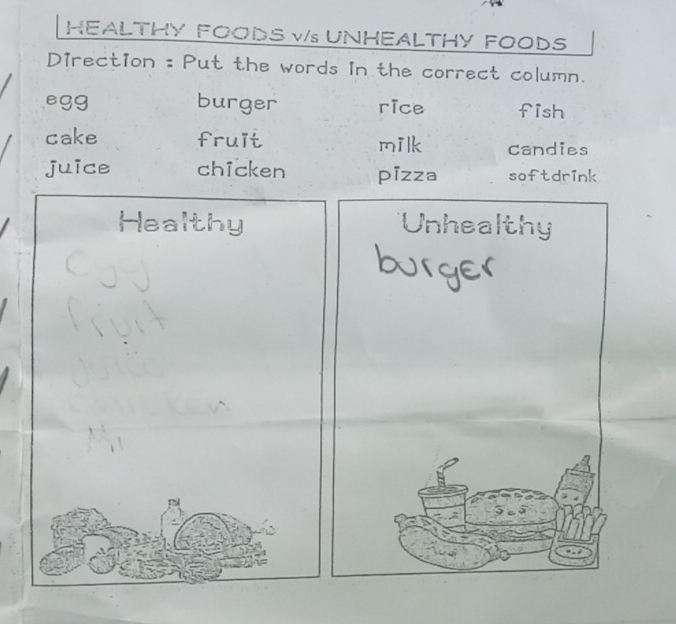 HEALTHY FOODS v/s UNHEALTHY FOODS
Direction : Put the words in the correct column.
egg burger rice fish
cake fruit milk candies
juice chicken pizza softdrink
Healthy Unhealthy
egg burger
fruit
juice
chicken
Mi